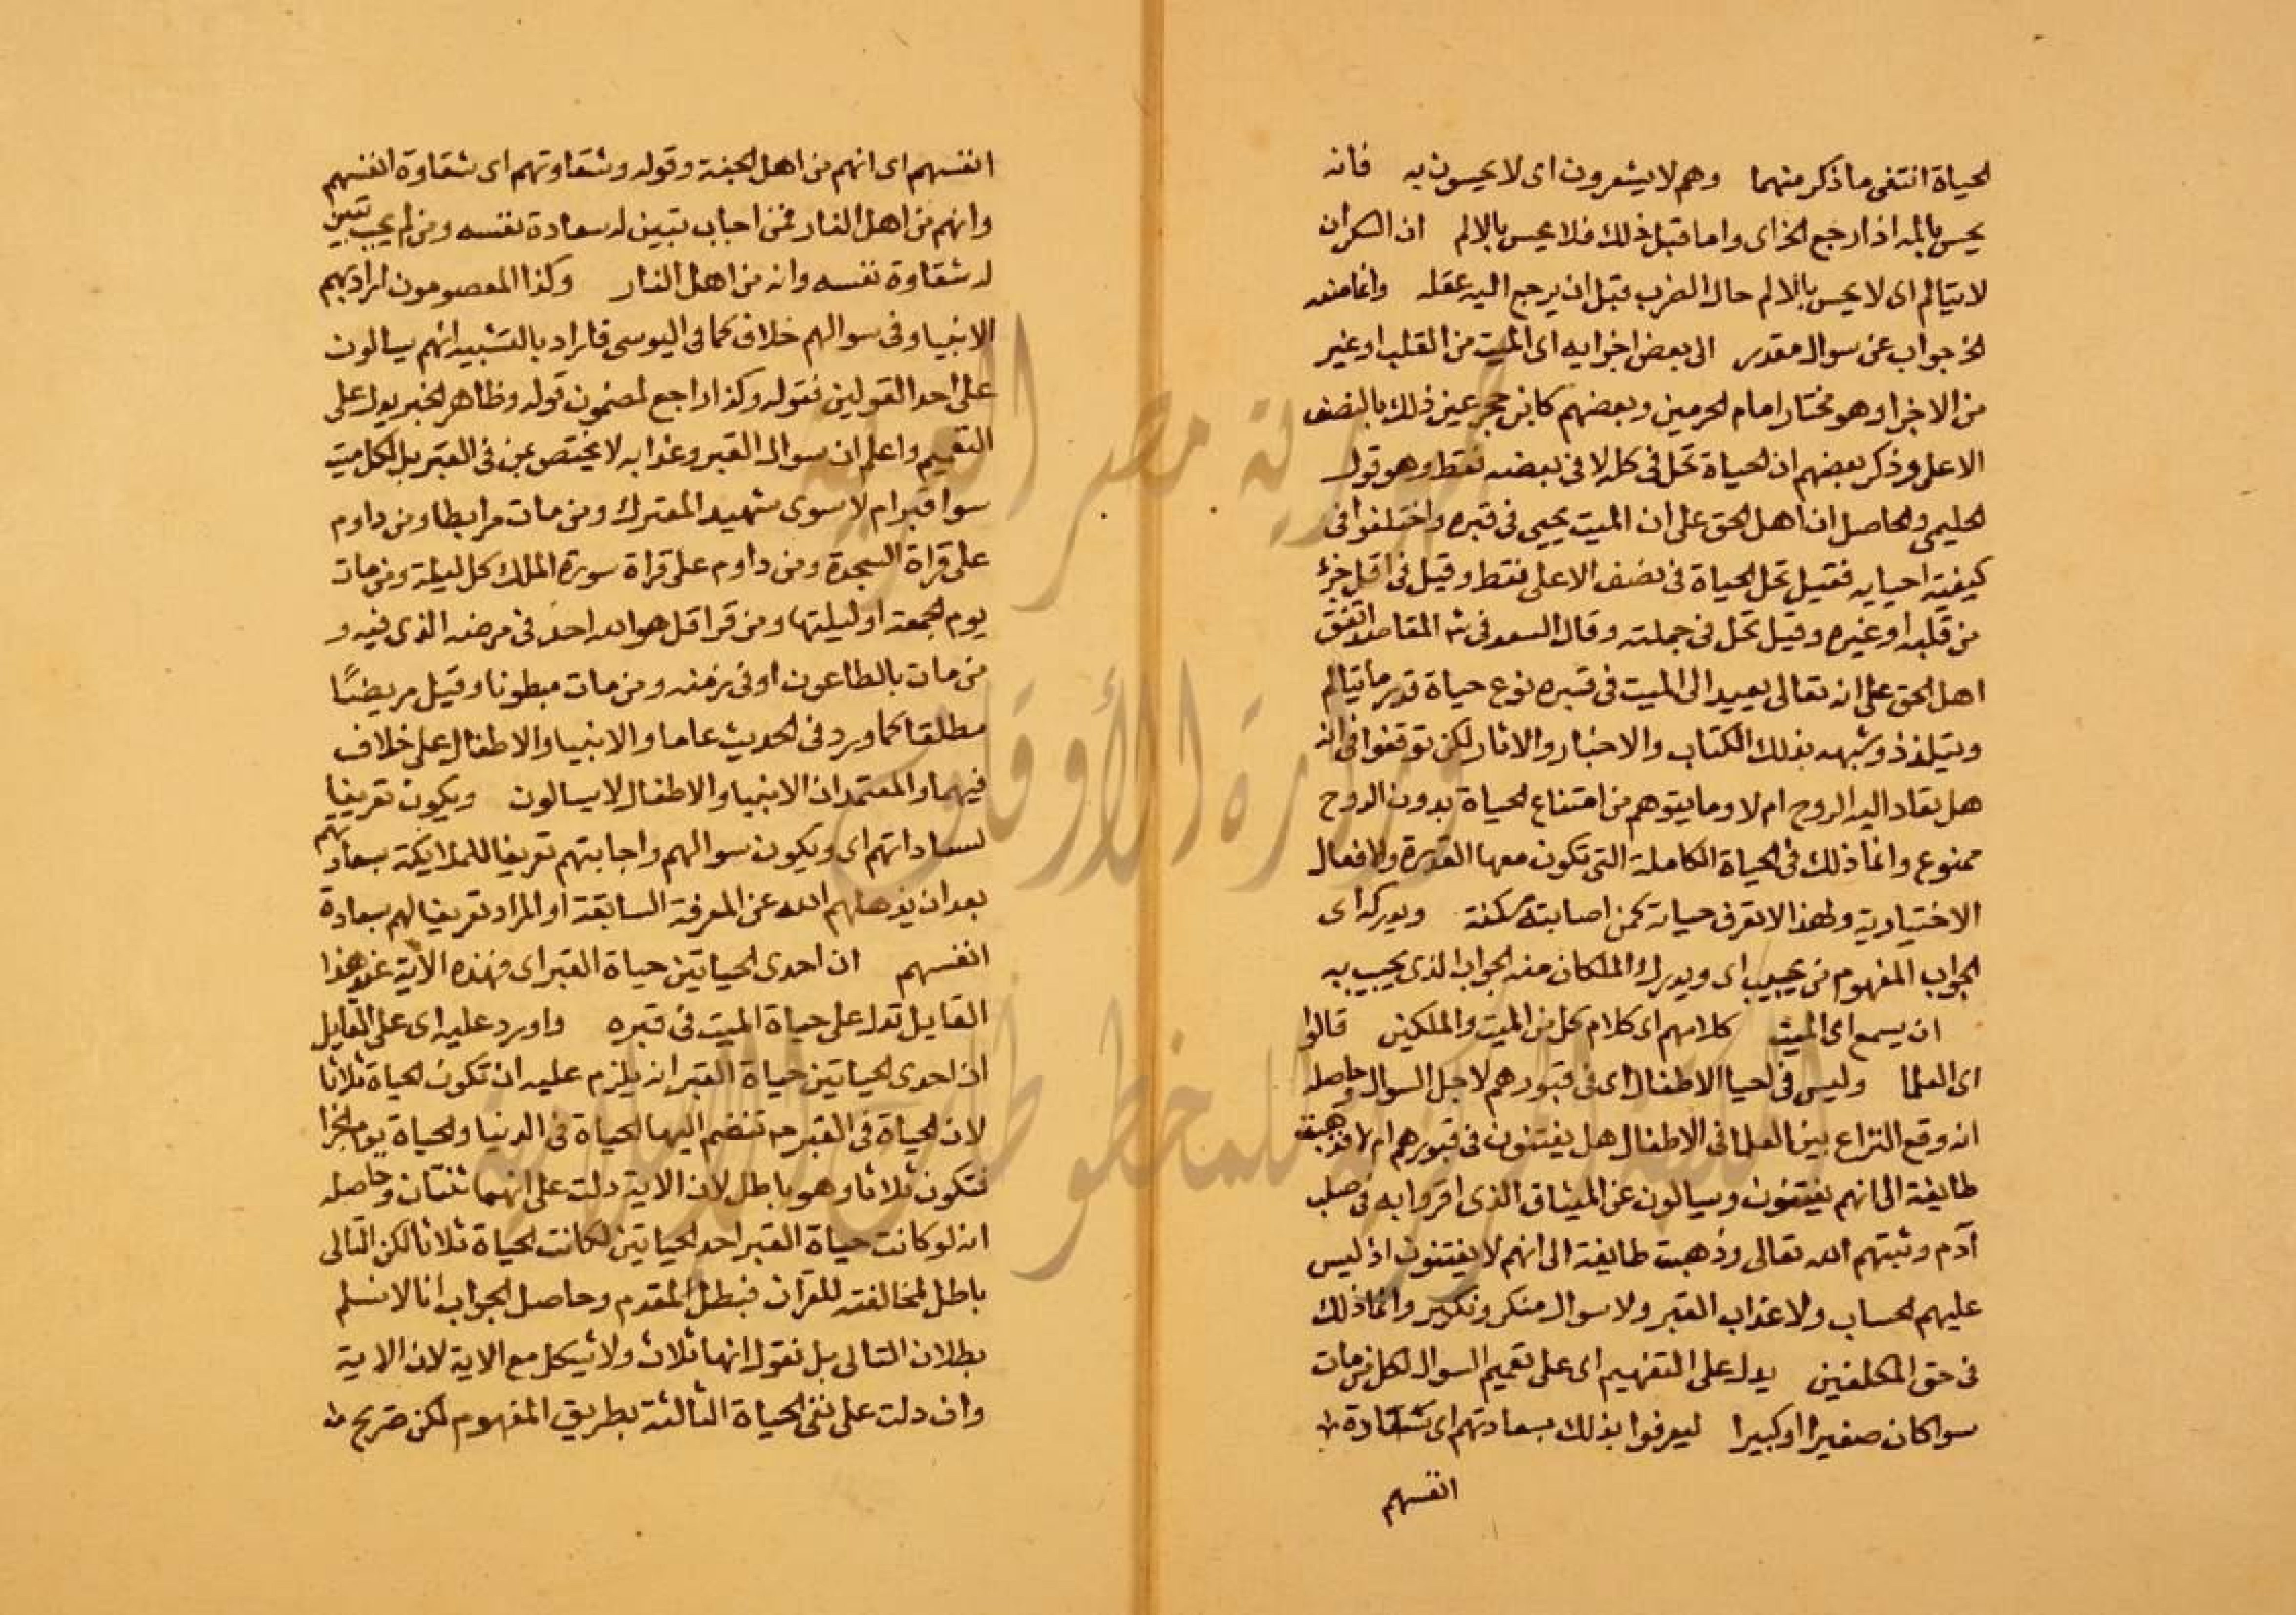 الحياة انتفى ما ذكر منهما وهم لا يشعرون اى لا يحسون به فانه
يحس بالمه اذا رجع الخ اى واما قبل ذلك فلا يحس بالالم ان السكران
لا يتالم اى لا يحس بالالم حال الضرب قبل ان يرجع اليه عقله وانما منعه
الخ جواب عن سوال مقدر الى بعض اجزايه اى الميت من القلب او غير
من الاجزا وهو مختار امام الحرمين وبعضهم كابن حجر عين ذلك بالنصف
الاعلى وذكر بعضهم ان الحياة تحل فى كله لا فى بعضه فقط وهو قول
الحليمى والحاصل ان اهل الحق على ان الميت يحيى فى قبره واختلفوا فى
كيفية احيايه فقيل تحل الحياة فى نصف الاعلى فقط وقيل فى اقل جزء
من قلبه او غيره وقيل تحل فى جملته وقال السعد فى شـ المقاصد اتفق
اهل الحق على انه تعالى يعيد الى الميت فى قبره نوع حياة قدر ما يتالم
ويتلذذ وشهد بذلك الكتاب والاخبار والاثار لكن توقفوا فى انه
هل يعاد اليه الروح ام لا وما يتوهم من امتناع الحياة بدون الروح
ممنوع وانما ذلك فى الحياة الكاملة التى تكون معها القدرة والافعال
الاختيارية ولهذا لا تعرف حياته كمن اصابته سكتة ويدركه اى
الجواب المفهوم من يجيب اى ويدرك الملكان منه الجواب الذى يجيب به
ان يسمع اى الميت كلامهم اى كلام كل من الميت والملكين قالوا
اى العلما وليس فى احيا الاطفال اى فى قبورهم لاجل السوال وحاصله
انه وقع النزاع بين العلما فى الاطفال هل يفتنون فى قبورهم ام لا فذهبت
طايفة الى انهم يفتنون ويسالون عن الميثاق الذى اقروا به فى صلب
آدم وثبتهم الله تعالى وذهبت طايفة الى انهم لا يفتنون اذ ليس
عليهم لحساب ولا عذاب القبر ولا سوال منكر ونكير وانما ذلك
فى حق المكلفين يدل على التفهيم اى على تعميم السوال لكل من مات
سوا كان صغيرا او كبيرا ليعرفوا بذلك بسعادتهم اى
انفسهم
انفسهم اى انهم من اهل الجنة وقوله وشقاوتهم اى شقاوة انفسهم
وانهم من اهل النار فمن اجاب تبين له سعادة نفسه ومن لم يجب تبين
له شقاوة نفسه وانه من اهل النار وكذا المعصومون اراد بهم
الانبيا وفى سوالهم خلاف كما فى اليوسى فاراد بالتشبيه انهم يسالون
على احد القولين فقوله وكذا راجع لمضمون قوله وظاهر الخبر يدل على
التعميم واعلم ان سوال القبر وعذابه لا يختص بمن فى القبر بل لكل ميت
سوا قبر ام لا سوى شهيد المعترك ومن مات مرابطا ومن داوم
على قراة السجدة ومن داوم على قراة سورة الملك كل ليلة ومن مات
يوم الجمعة او ليلتها ومن قرا قل هو الله احد فى مرضه الذى فيه و
من مات بالطاعون او فى زمنه ومن مات مبطونا وقيل مريضًا
مطلقا كما ورد فى الحديث عاما والانبيا والاطفال على خلاف
فيهما والمعتمد ان الانبيا والاطفال لا يسالون ويكون تعريفا
لسعاداتهم اى ويكون سوالهم واجابتهم تعريفا للملايكة بسعادتهم
بعد ان يذهلهم الله عن المعرفة السابقة او المراد تعريفا لهم بسعادة
انفسهم ان احدى الحياتين حياة القبر اى فهذه الآية عند هذا
القايل تدل على حياة الميت فى قبره واورد عليه اى على القايل
ان احدى الحياتين حياة القبر انه يلزم عليه ان تكون الحياة ثلاثا
لان الحياة فى القبر تنضم اليها الحياة فى الدنيا والحياة يوم الجزا
فتكون ثلاثا وهو باطل لان الاية دلت على انهما ثنتان وحاصله
انه لو كانت حياة القبر احد الحياتين لكانت الحياة ثلاثا لكن التالى
باطل لمخالفته للقرآن فبطل المقدم وحاصل الجواب انا لا نسلم
بطلان التالى بل نقول انها ثلاث ولا يشكل مع الاية لان الاية
وان دلت على نفى الحياة الثالثة بطريق المفهوم لكن صريح
جمهورية مصر العربية
وزارة الأوقاف
المكتبة المركزية للمخطوطات الإسلامية